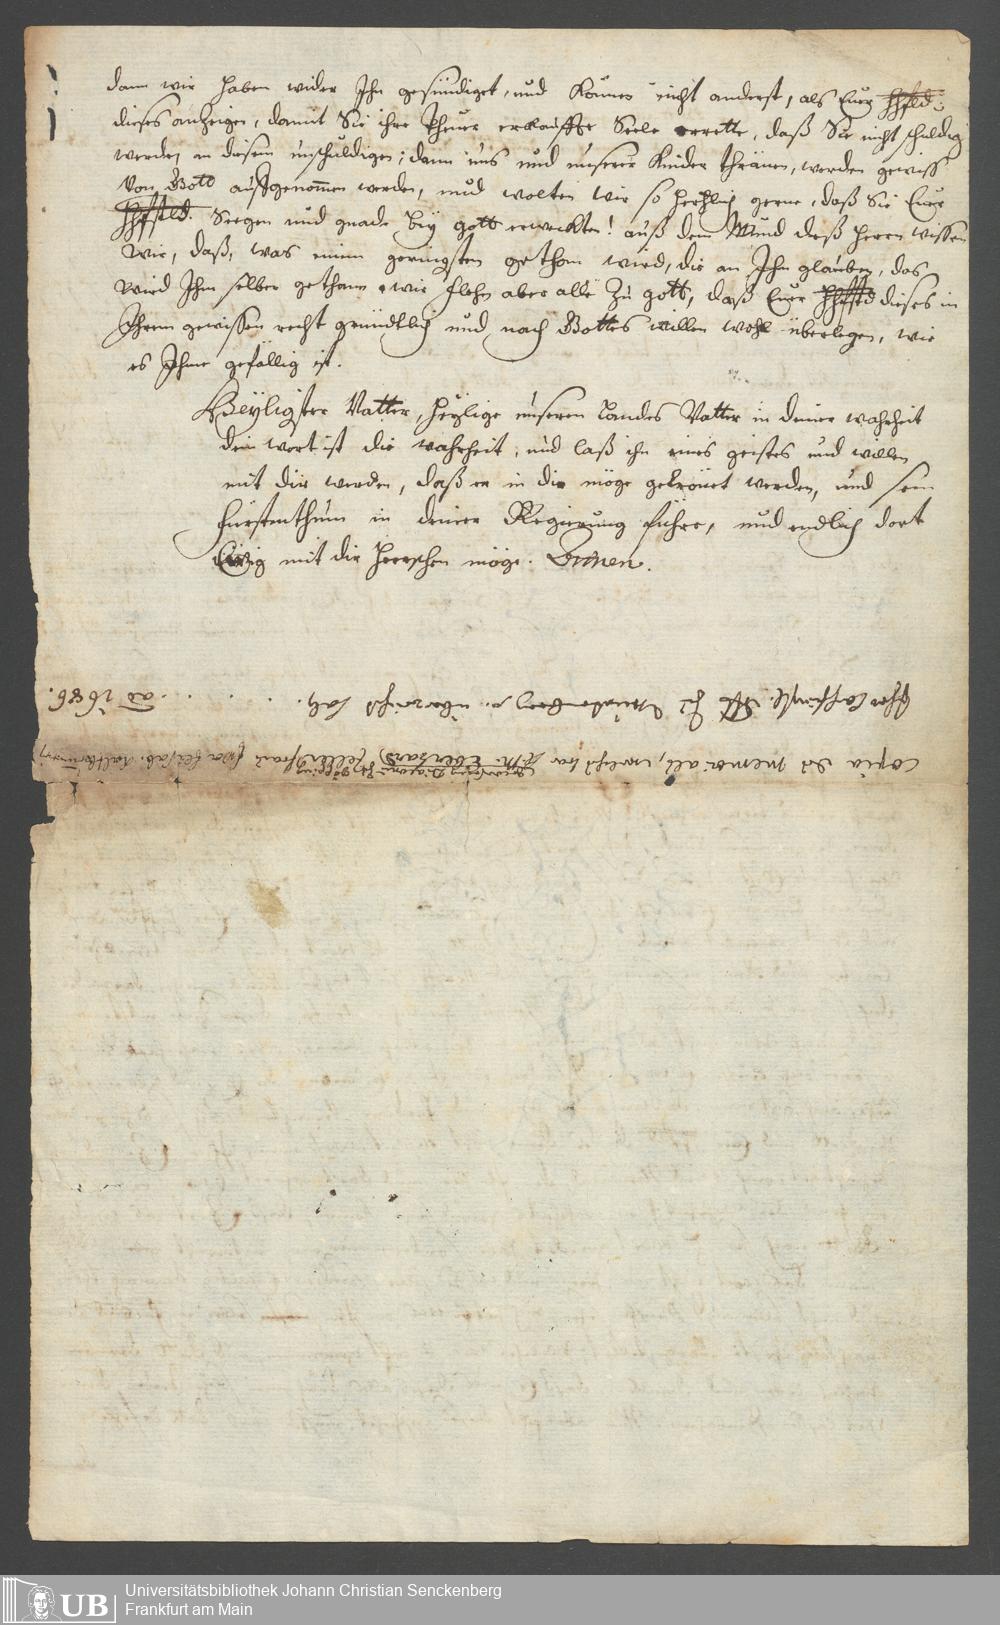 dann wir haben wider Ihn gesündiget, und Können nicht anderst, als Euer Hhfstd:
dieses anzeigen, damit Sie ihre theuer erkauffte Seele errette, daß Sie nicht schuldig
werden, an diesem unschuldigen; dann uns und unserer Kinder thränen, werden gewiß
Von Gott aufgenommen werden, und wolten wir so hertzlich gerne, daß Sie Euer
Hhfstld. Seegen und gnade bey gott erweckten! auß dem Mund deß Herrn wissen
Wir, daß, was einem geringsten gethan wird, die an Ihn glauben, das
Wird Ihm selber gethan. wir flehen aber alle zu gott, daß Euer Hhfstd dieses in
Ihrem gewissen recht gründtlich und nach Gottes willen wohl überlegen, wie
es Ihme gefällig ist.
Heyligster Vatter, heylige unseren Landes Vatter in deiner wahrheit
dein wort ist die wahrheit, und laß ihn eines geistes und willen
mit dir werden, daß er in dir möge gekrönet werden, und sein
Fürstenthum in deiner Regierung führe, und endlich dort
Ewig mit dir herrschen möge. Amen.
Copia des Memorials, welches
überreicht hatt. . . . . . aō 1686.
Universitätsbibliothek Johann Christian Senckenberg
Frankfurt am Main
UB